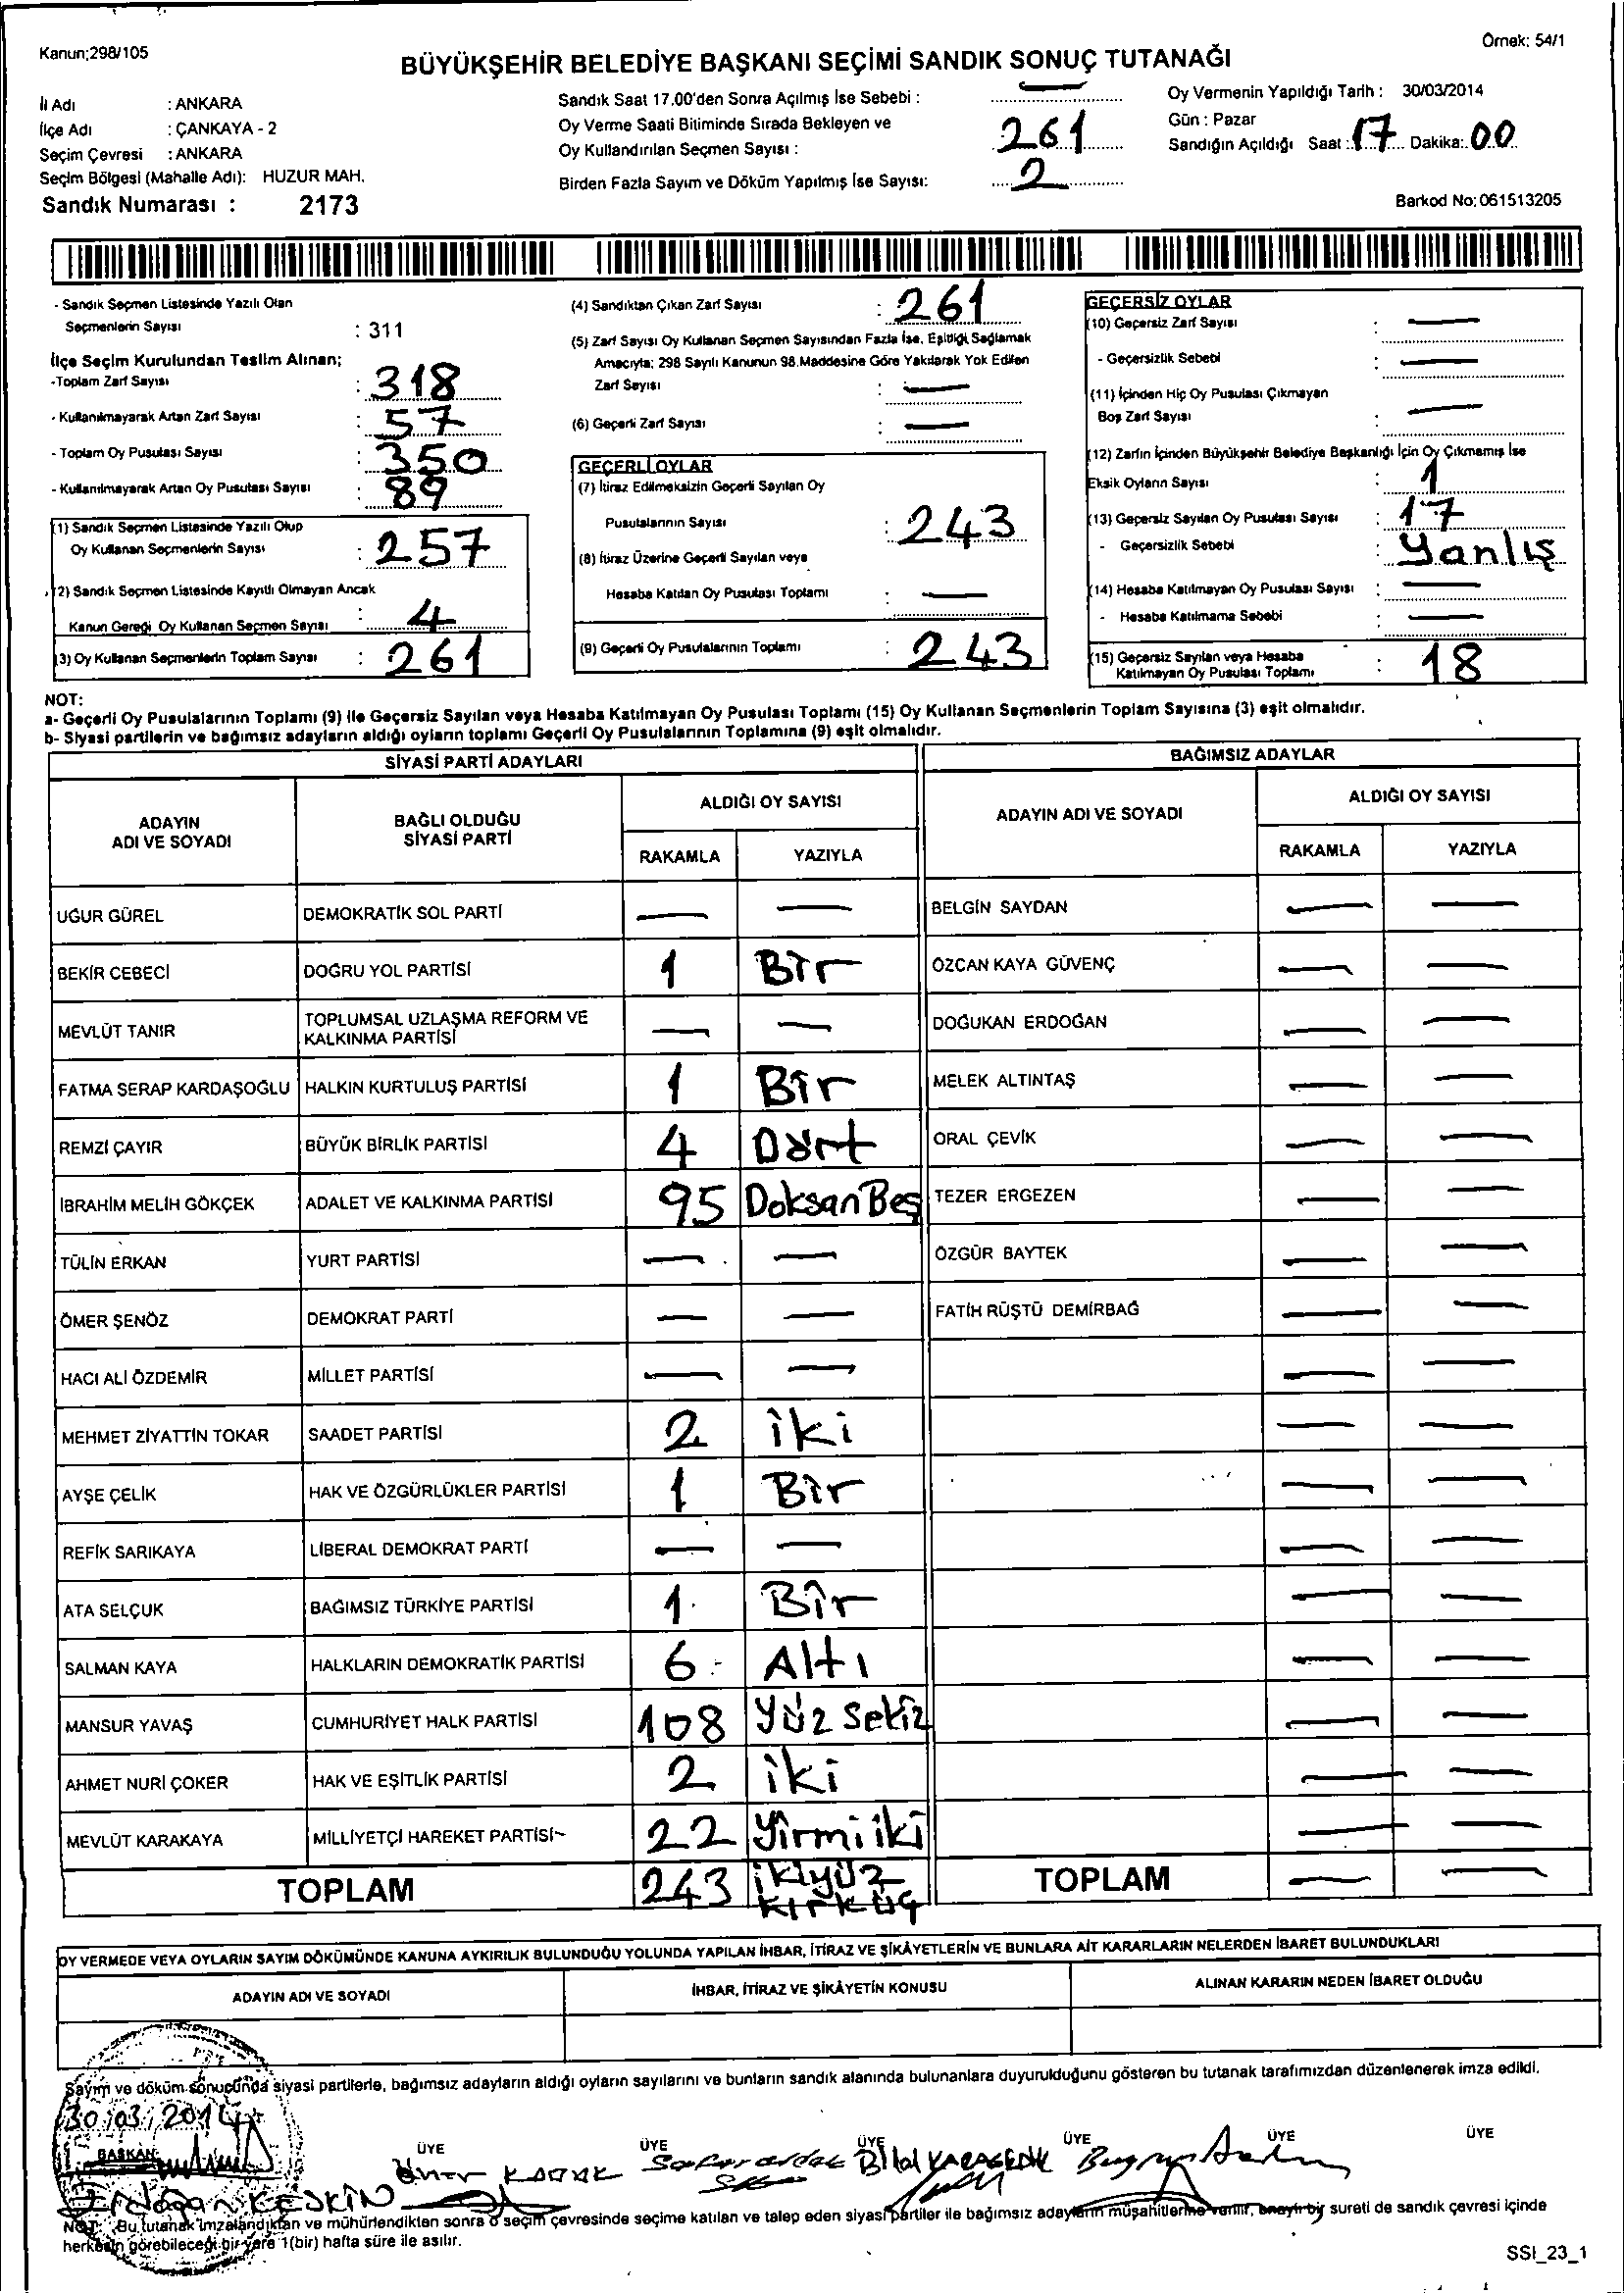 Kanun;298/105
Örnek: 54/1
BÜYÜKŞEHİR BELEDİYE BAŞKANI SEÇİMİ SANDIK SONUÇ TUTANAĞI
İl Adı : ANKARA
İlçe Adı : ÇANKAYA - 2
Seçim Çevresi : ANKARA
Seçim Bölgesi (Mahalle Adı): HUZUR MAH.
Sandık Numarası : 2173
Sandık Saat 17.00'den Sonra Açılmış İse Sebebi : —
Oy Verme Saati Bitiminde Sırada Bekleyen ve
Oy Kullandırılan Seçmen Sayısı : 261
Birden Fazla Sayım ve Döküm Yapılmış İse Sayısı: 2
Oy Vermenin Yapıldığı Tarih : 30/03/2014
Gün : Pazar
Sandığın Açıldığı Saat : 17 Dakika: 00
Barkod No: 061513205
- Sandık Seçmen Listesinde Yazılı Olan
Seçmenlerin Sayısı : 311
İlçe Seçim Kurulundan Teslim Alınan;
-Toplam Zarf Sayısı : 318
- Kullanılmayarak Artan Zarf Sayısı : 57
- Toplam Oy Pusulası Sayısı : 350
- Kullanılmayarak Artan Oy Pusulası Sayısı : 89
(1) Sandık Seçmen Listesinde Yazılı Olup
Oy Kullanan Seçmenlerin Sayısı : 257
(2) Sandık Seçmen Listesinde Kayıtlı Olmayan Ancak
Kanun Gereği Oy Kullanan Seçmen Sayısı : 4
(3) Oy Kullanan Seçmenlerin Toplam Sayısı : 261
(4) Sandıktan Çıkan Zarf Sayısı : 261
(5) Zarf Sayısı Oy Kullanan Seçmen Sayısından Fazla İse, Eşitliği Sağlamak
Amacıyla; 298 Sayılı Kanunun 98.Maddesine Göre Yakılarak Yok Edilen
Zarf Sayısı : —
(6) Geçerli Zarf Sayısı : —
GEÇERLİ OYLAR
(7) İtiraz Edilmeksizin Geçerli Sayılan Oy
Pusulalarının Sayısı : 243
(8) İtiraz Üzerine Geçerli Sayılan veya
Hesaba Katılan Oy Pusulası Toplamı : —
(9) Geçerli Oy Pusulalarının Toplamı : 243
GEÇERSİZ OYLAR
(10) Geçersiz Zarf Sayısı : —
- Geçersizlik Sebebi : —
(11) İçinden Hiç Oy Pusulası Çıkmayan
Boş Zarf Sayısı : —
(12) Zarfın İçinden Büyükşehir Belediye Başkanlığı İçin Oy Çıkmamış İse
Eksik Oyların Sayısı : 1
(13) Geçersiz Sayılan Oy Pusulası Sayısı : 17
- Geçersizlik Sebebi : Yanlış
(14) Hesaba Katılmayan Oy Pusulası Sayısı : —
- Hesaba Katılmama Sebebi : —
(15) Geçersiz Sayılan veya Hesaba
Katılmayan Oy Pusulası Toplamı : 18
NOT:
a- Geçerli Oy Pusulalarının Toplamı (9) ile Geçersiz Sayılan veya Hesaba Katılmayan Oy Pusulası Toplamı (15) Oy Kullanan Seçmenlerin Toplam Sayısına (3) eşit olmalıdır.
b- Siyasi partilerin ve bağımsız adayların aldığı oyların toplamı Geçerli Oy Pusulalarının Toplamına (9) eşit olmalıdır.
SİYASİ PARTİ ADAYLARI
BAĞIMSIZ ADAYLAR
ADAYIN
ADI VE SOYADI
BAĞLI OLDUĞU
SİYASİ PARTİ
ALDIĞI OY SAYISI
RAKAMLA YAZIYLA
ADAYIN ADI VE SOYADI
ALDIĞI OY SAYISI
RAKAMLA YAZIYLA
UĞUR GÜREL DEMOKRATİK SOL PARTİ — — BELGİN SAYDAN — —
BEKİR CEBECİ DOĞRU YOL PARTİSİ 1 Bir ÖZCAN KAYA GÜVENÇ — —
MEVLÜT TANIR TOPLUMSAL UZLAŞMA REFORM VE
KALKINMA PARTİSİ — — DOĞUKAN ERDOĞAN — —
FATMA SERAP KARDAŞOĞLU HALKIN KURTULUŞ PARTİSİ 1 Bir MELEK ALTINTAŞ — —
REMZİ ÇAYIR BÜYÜK BİRLİK PARTİSİ 4 Dört ORAL ÇEVİK — —
İBRAHİM MELİH GÖKÇEK ADALET VE KALKINMA PARTİSİ 95 Doksan Beş TEZER ERGEZEN — —
TÜLİN ERKAN YURT PARTİSİ — — ÖZGÜR BAYTEK — —
ÖMER ŞENÖZ DEMOKRAT PARTİ — — FATİH RÜŞTÜ DEMİRBAĞ — —
HACI ALİ ÖZDEMİR MİLLET PARTİSİ — — — —
MEHMET ZİYATTİN TOKAR SAADET PARTİSİ 2 iki — —
AYŞE ÇELİK HAK VE ÖZGÜRLÜKLER PARTİSİ 1 Bir — —
REFİK SARIKAYA LİBERAL DEMOKRAT PARTİ — — — —
ATA SELÇUK BAĞIMSIZ TÜRKİYE PARTİSİ 1 Bir — —
SALMAN KAYA HALKLARIN DEMOKRATİK PARTİSİ 6 Altı — —
MANSUR YAVAŞ CUMHURİYET HALK PARTİSİ 108 Yüz Sekiz — —
AHMET NURİ ÇOKER HAK VE EŞİTLİK PARTİSİ 2 iki — —
MEVLÜT KARAKAYA MİLLİYETÇİ HAREKET PARTİSİ 22 Yirmi iki — —
TOPLAM 243 ikiyüz
kırk üç TOPLAM — —
OY VERMEDE VEYA OYLARIN SAYIM DÖKÜMÜNDE KANUNA AYKIRILIK BULUNDUĞU YOLUNDA YAPILAN İHBAR, İTİRAZ VE ŞİKÂYETLERİN VE BUNLARA AİT KARARLARIN NELERDEN İBARET BULUNDUKLARI
ADAYIN ADI VE SOYADI İHBAR, İTİRAZ VE ŞİKÂYETİN KONUSU ALINAN KARARIN NEDEN İBARET OLDUĞU
Sayım ve döküm sonucunda siyasi partilerle, bağımsız adayların aldığı oyların sayılarını ve bunların sandık alanında bulunanlara duyurulduğunu gösteren bu tutanak tarafımızdan düzenlenerek imza edildi.
30/03/2014
BAŞKAN ÜYE ÜYE ÜYE ÜYE ÜYE ÜYE
Bilal KARAGEDİK
Erdoğan KESKİN
NOT: Bu tutanak imzalandıktan ve mühürlendikten sonra o seçim çevresinde seçime katılan ve talep eden siyasi partiler ile bağımsız adayların müşahitlerine verilir, onaylı bir sureti de sandık çevresi içinde
herkesin görebileceği bir yere 1(bir) hafta süre ile asılır.
SSI_23_1